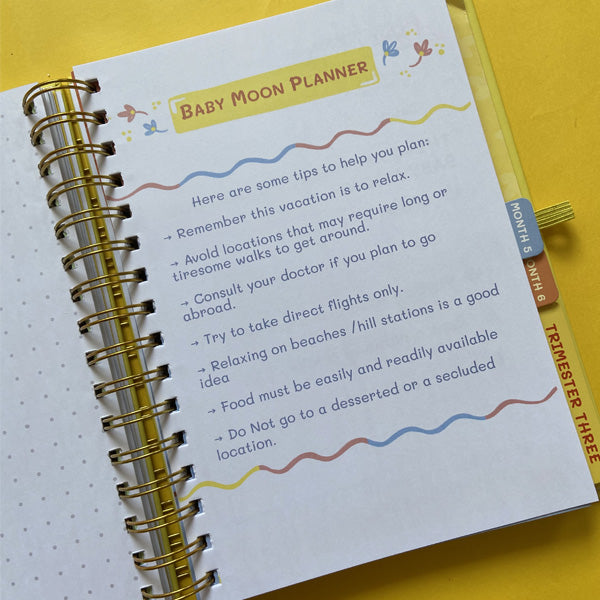 BABY MOON PLANNER
Here are some tips to help you plan:
→ Remember this vacation is to relax.
→ Avoid locations that may require long or
tiresome walks to get around.
→ Consult your doctor if you plan to go
abroad.
→ Try to take direct flights only.
→ Relaxing on beaches /hill stations is a good
idea
→ Food must be easily and readily available
→ Do Not go to a desserted or a secluded
location.
MONTH 5
ONTH 6
TRIMESTER THREE